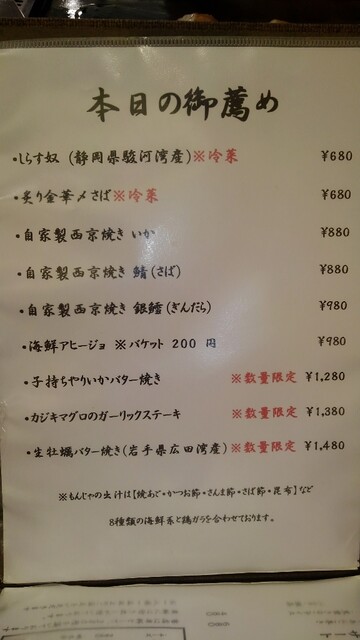 本日の御薦め
・しらす奴 (静岡県駿河湾産)※冷菜 ¥680
・炙り金華〆さば※冷菜 ¥680
・自家製西京焼き いか ¥880
・自家製西京焼き 鯖(さば) ¥880
・自家製西京焼き 銀鱈(ぎんだら) ¥980
・海鮮アヒージョ ※バケット 200 円 ¥980
・子持ちやりいかバター焼き ※数量限定 ¥1,280
・カジキマグロのガーリックステーキ ※数量限定 ¥1,380
・生牡蠣バター焼き(岩手県広田湾産) ※数量限定 ¥1,480
※もんじゃの出汁は【焼あご・かつお節・さんま節・さば節・昆布】など
8種類の海鮮系と鶏ガラを合わせております。